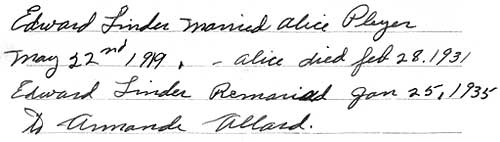 Edward Linder married Alice Player
May 22nd 1919, - alice died feb 28.1931
Edward Linder Remaried Jan 25, 1935
to Armande Allard.